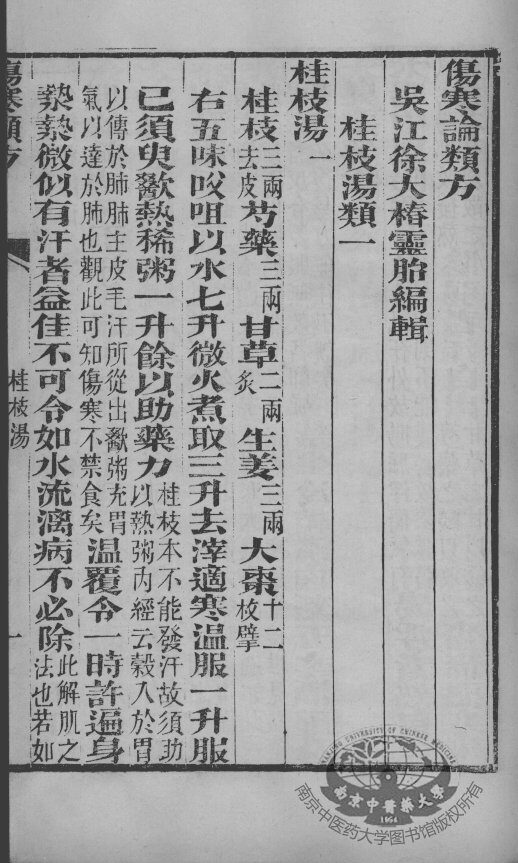 傷寒論類方
吳江徐大椿靈胎編輯
桂枝湯類一
桂枝湯一
桂枝三兩去皮芍藥三兩甘草二兩炙生姜三兩大棗十二枚擘
右五味㕮咀以水七升微火煮取三升去滓適寒温服一升服
已須臾歠熱稀粥一升餘以助藥力桂枝本不能發汗故須助以熱粥內經云穀入於胃
以傳於肺肺主皮毛汗所從出歠粥充胃氣以達於肺也觀此可知傷寒不禁食矣温覆令一時許遍身
漐漐微似有汗者益佳不可令如水流漓病不必除此解肌之法也若如
傷寒類方
桂枝湯
一
NANJING UNIVERSITY OF CHINESE MEDICINE
南京中醫藥大學
1954
南京中医药大学图书馆版权所有